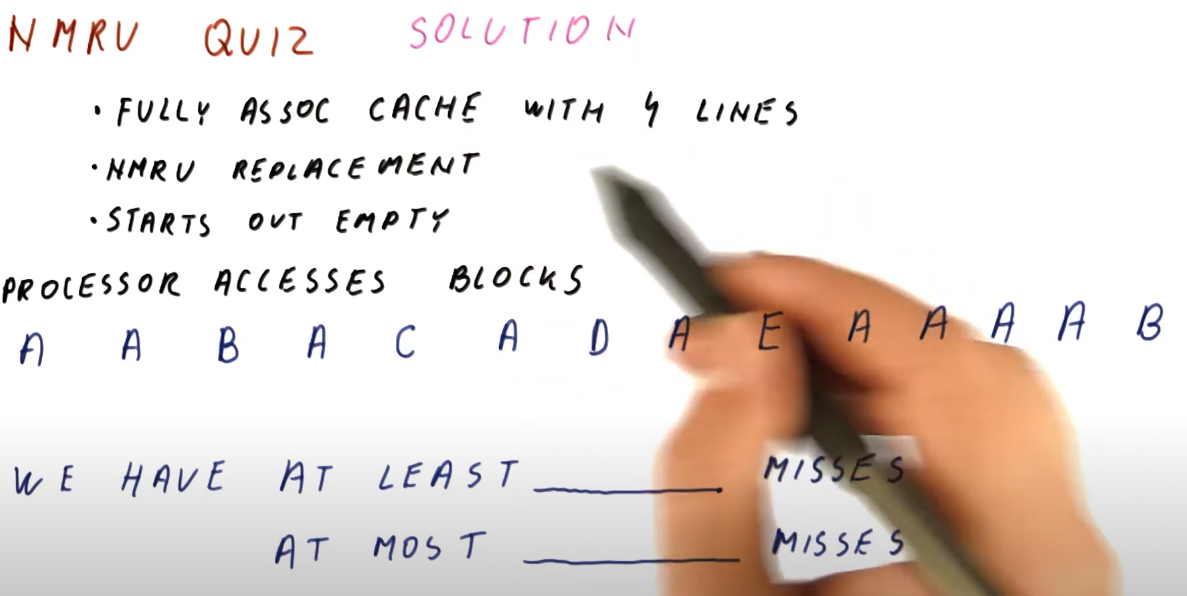 NMRU QUIZ SOLUTION
• FULLY ASSOC CACHE WITH 4 LINES
• NMRU REPLACEMENT
• STARTS OUT EMPTY
PROCESSOR ACCESSES BLOCKS
A A B A C A D A E A A A A B
WE HAVE AT LEAST ______ MISSES
AT MOST ______ MISSES